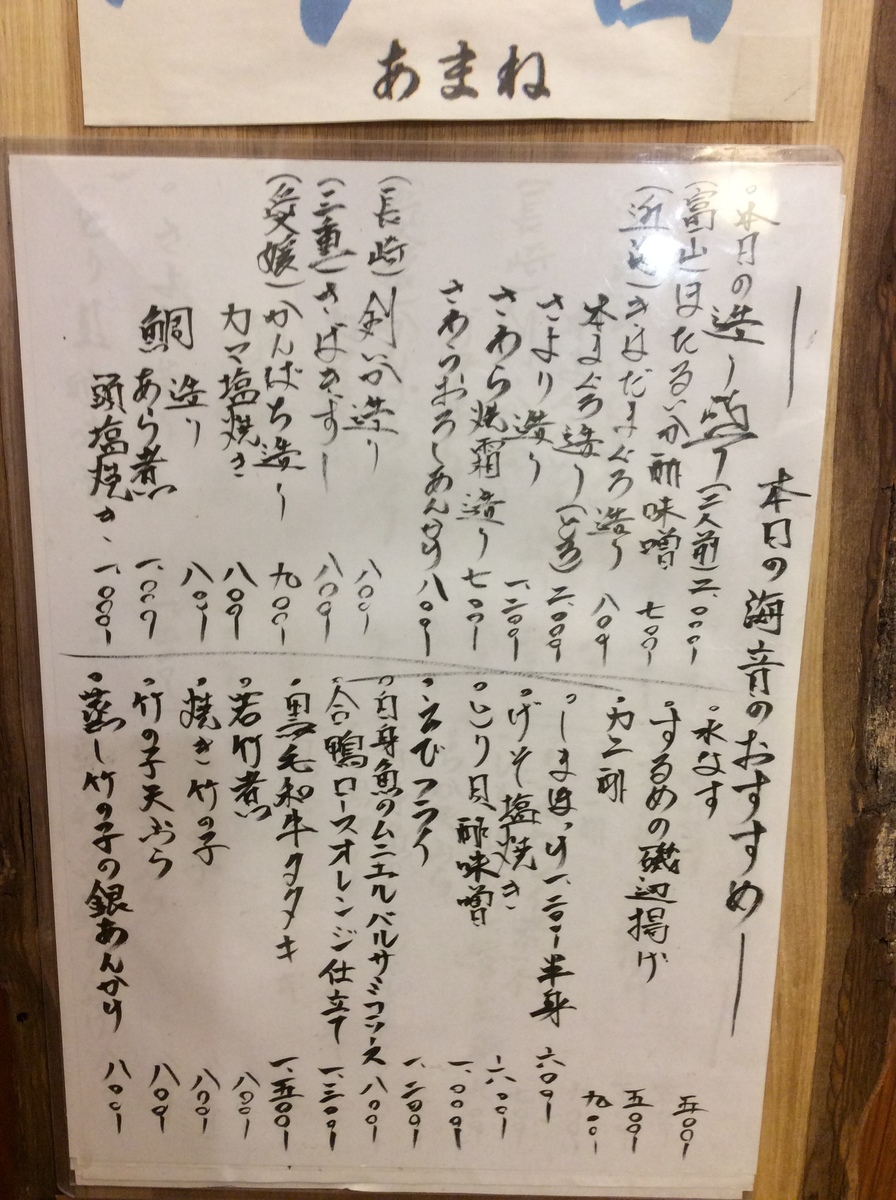 あまね
本日の海音のおすすめ
・本日の造り盛り(二人前)二、〇〇〇ー
(富山)ほたるいか酢味噌 七〇〇ー
(近海)きはだまぐろ造り 八〇〇ー
本まぐろ造り(とろ) 二、〇〇〇ー
さより造り 一、二〇〇ー
さわら焼霜造り 七〇〇ー
さわらおろしあんかけ 八〇〇ー
(長崎)剣いか造り 八〇〇ー
(三重)さばきずし 八〇〇ー
(愛媛)かんぱち造り 九〇〇ー
カマ塩焼き 八〇〇ー
鯛 造り 八〇〇ー
あら煮 一、〇〇〇ー
頭塩焼き 一、〇〇〇ー
・水なす 五〇〇ー
・するめの磯辺揚げ 五〇〇ー
・カニ酢 九〇〇ー
・しまほっけ 一、二〇〇ー 半身 六〇〇ー
・げそ塩焼き 六〇〇ー
・とり貝酢味噌 一、〇〇〇ー
・えびフライ 一、二〇〇ー
・白身魚のムニエルバルサミコソース 八〇〇ー
・合鴨ロースオレンジ仕立て 一、三〇〇ー
・黒毛和牛タタキ 一、五〇〇ー
・若竹煮 八〇〇ー
・焼き竹の子 八〇〇ー
・竹の子天ぷら 八〇〇ー
・蒸し竹の子の銀あんかけ 八〇〇ー